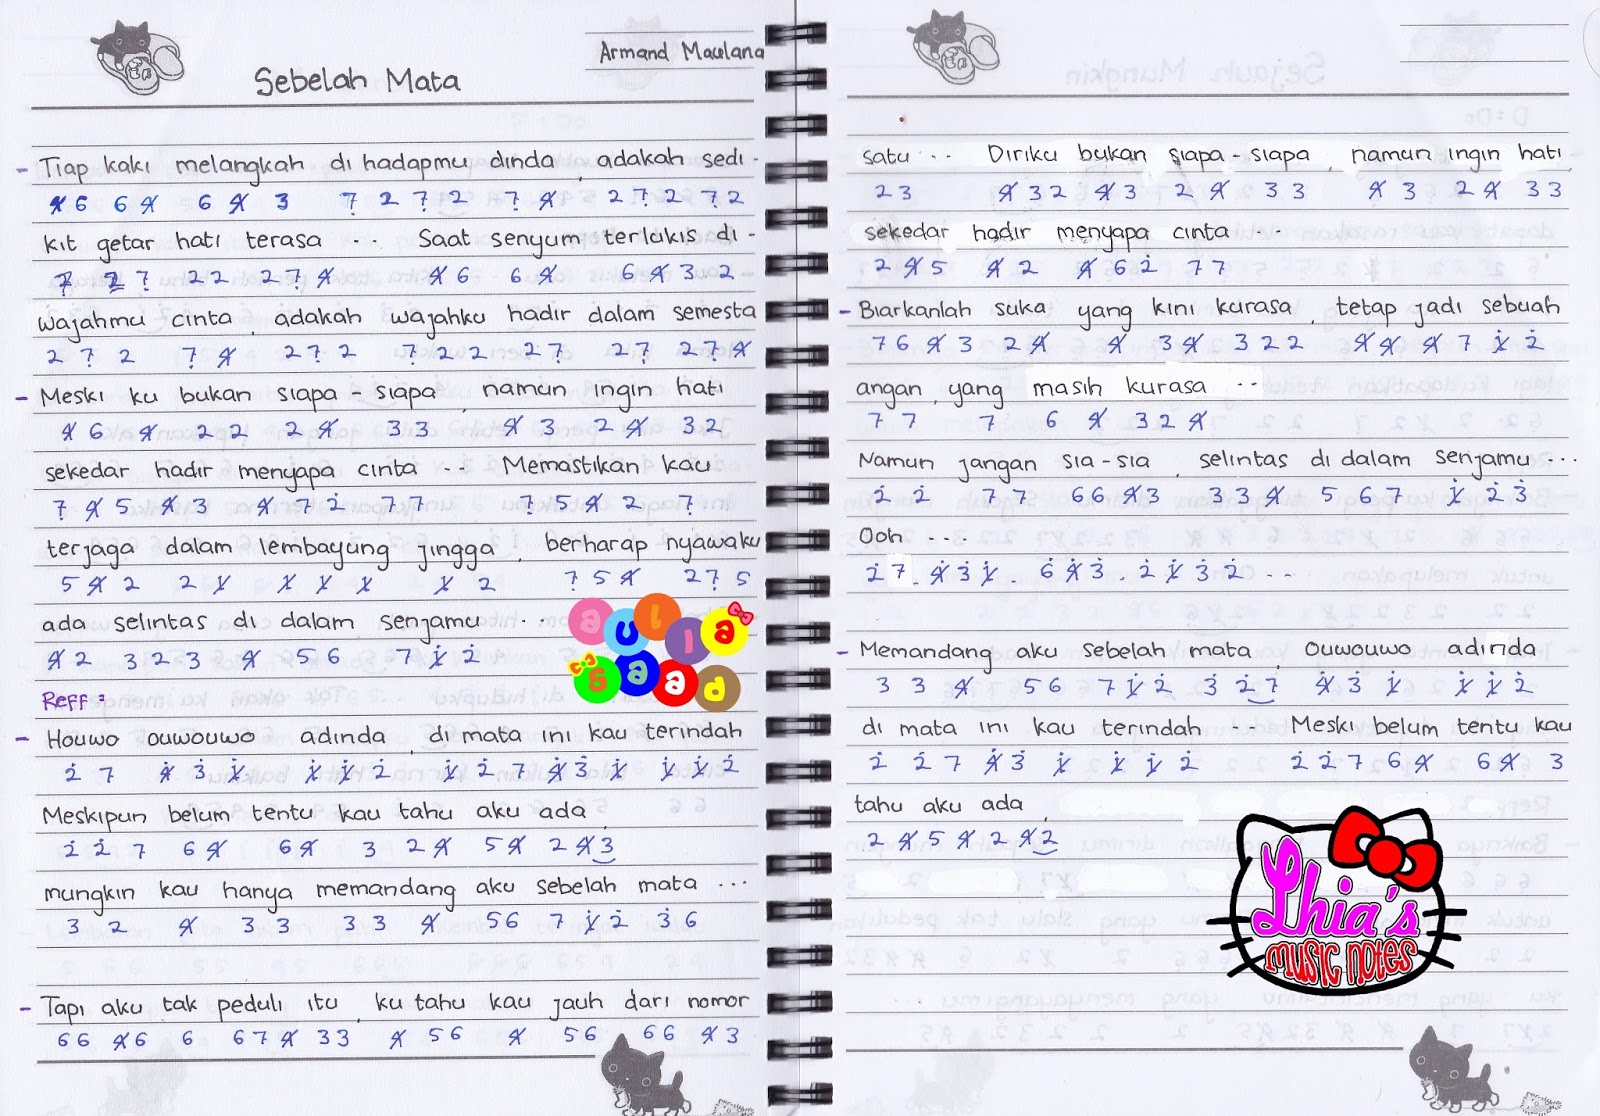 Armand Maulana
Sebelah Mata
- Tiap kaki melangkah di hadapmu dinda, adakah sedi-
4̸6 64̸ 64̸ 3 7̣ 2 7̣ 2 7̣ 4̸ 2 7̣ 2 7̣ 2
kit getar hati terasa ... Saat senyum terlukis di-
7̣ 2 7̣ 2 2 2 7̣ 4̸ 4̸ 6 6 4̸ 6 4̸ 3 2
wajahmu cinta, adakah wajahku hadir dalam semesta
2 7̣ 2 7̣ 4̸ 2 7̣ 2 7̣ 2 2 2 7̣ 2 7̣ 2 7̣ 4̸
- Meski ku bukan siapa-siapa, namun ingin hati
4̸ 6 4̸ 2 2 2 4̸ 3 3 4̸ 3 2 4̸ 3 2
sekedar hadir menyapa cinta .. Memastikan kau
7̣ 4̸ 5 4̸ 3 4̸ 7 2̇ 7 7 7̣ 5 4̸ 2 7̣
terjaga dalam lembayung jingga, berharap nyawaku
5 4̸ 2 2 1̸ 1̸ 1̸ 1̸ 1̸ 2 7̣ 5 4̸ 2 7̣ 5
ada selintas di dalam senjamu ...
4̸ 2 3 2 3 4̸ 5 6 7 1̸̇ 2̇
Reff :
- Houwo ouwouwo adinda, di mata ini kau terindah
2̇ 7 4̸̇ 3̇ 1̸̇ 1̸̇ 1̸̇ 2̇ 1̸̇ 2̇ 7 4̸̇ 3̇ 1̸̇ 1̸̇ 1̸̇ 2̇
Meskipun belum tentu kau tahu aku ada,
2̇ 2̇ 7 6 4̸ 6 4̸ 3 2 4̸ 5 4̸ 2 4̸ 3
mungkin kau hanya memandang aku sebelah mata ...
3 2 4̸ 3 3 3 3 4̸ 5 6 7 1̸̇ 2̇ 3̇ 6
- Tapi aku tak peduli itu, ku tahu kau jauh dari nomor
6 6 4̸ 6 6 6 7 4̸ 3 3 4̸ 5 6 4̸ 5 6 6 6 4̸ 3
satu ... Diriku bukan siapa-siapa, namun ingin hati,
2 3 4̸ 3 2 4̸ 3 2 4̸ 3 3 4̸ 3 2 4̸ 3 3
sekedar hadir menyapa cinta ...
2 4̸ 5 4̸ 2 4̸ 6 2̇ 7 7
- Biarkanlah suka yang kini kurasa, tetap jadi sebuah
7 6 4̸ 3 2 4̸ 4̸ 3 4̸ 3 2 2 4̸ 4̸ 4̸ 7 1̸̇ 2̇
angan, yang masih kurasa ..
7 7 7 6 4̸ 3 2 4̸
Namun jangan sia-sia, selintas di dalam senjamu ...
2̇ 2̇ 7 7 6 6 4̸ 3 3 3 4̸ 5 6 7 1̸̇ 2̇ 3̇
Ooh ....
2̇ 7 . 4̸̇ 3̇ 1̸̇ . 6̇ 4̸̇ 3̇ . 2̇ 1̸̇ 3̇ 2̇ ..
- Memandang aku sebelah mata, ouwouwo adinda
3 3 4̸ 5 6 7 1̸̇ 2̇ 3̇ 2̇ 7 4̸̇ 3̇ 1̸̇ 1̸̇ 1̸̇ 2̇
di mata ini kau terindah .. Meski belum tentu kau
2̇ 2̇ 7 4̸̇ 3̇ 1̸̇ 1̸̇ 1̸̇ 2̇ 2̇ 2̇ 7 6 4̸ 6 4̸ 3
tahu aku ada,
2 4̸ 5 4̸ 2 4̸ 2
aulia
saad
Lhia's
MUSIC NOTES